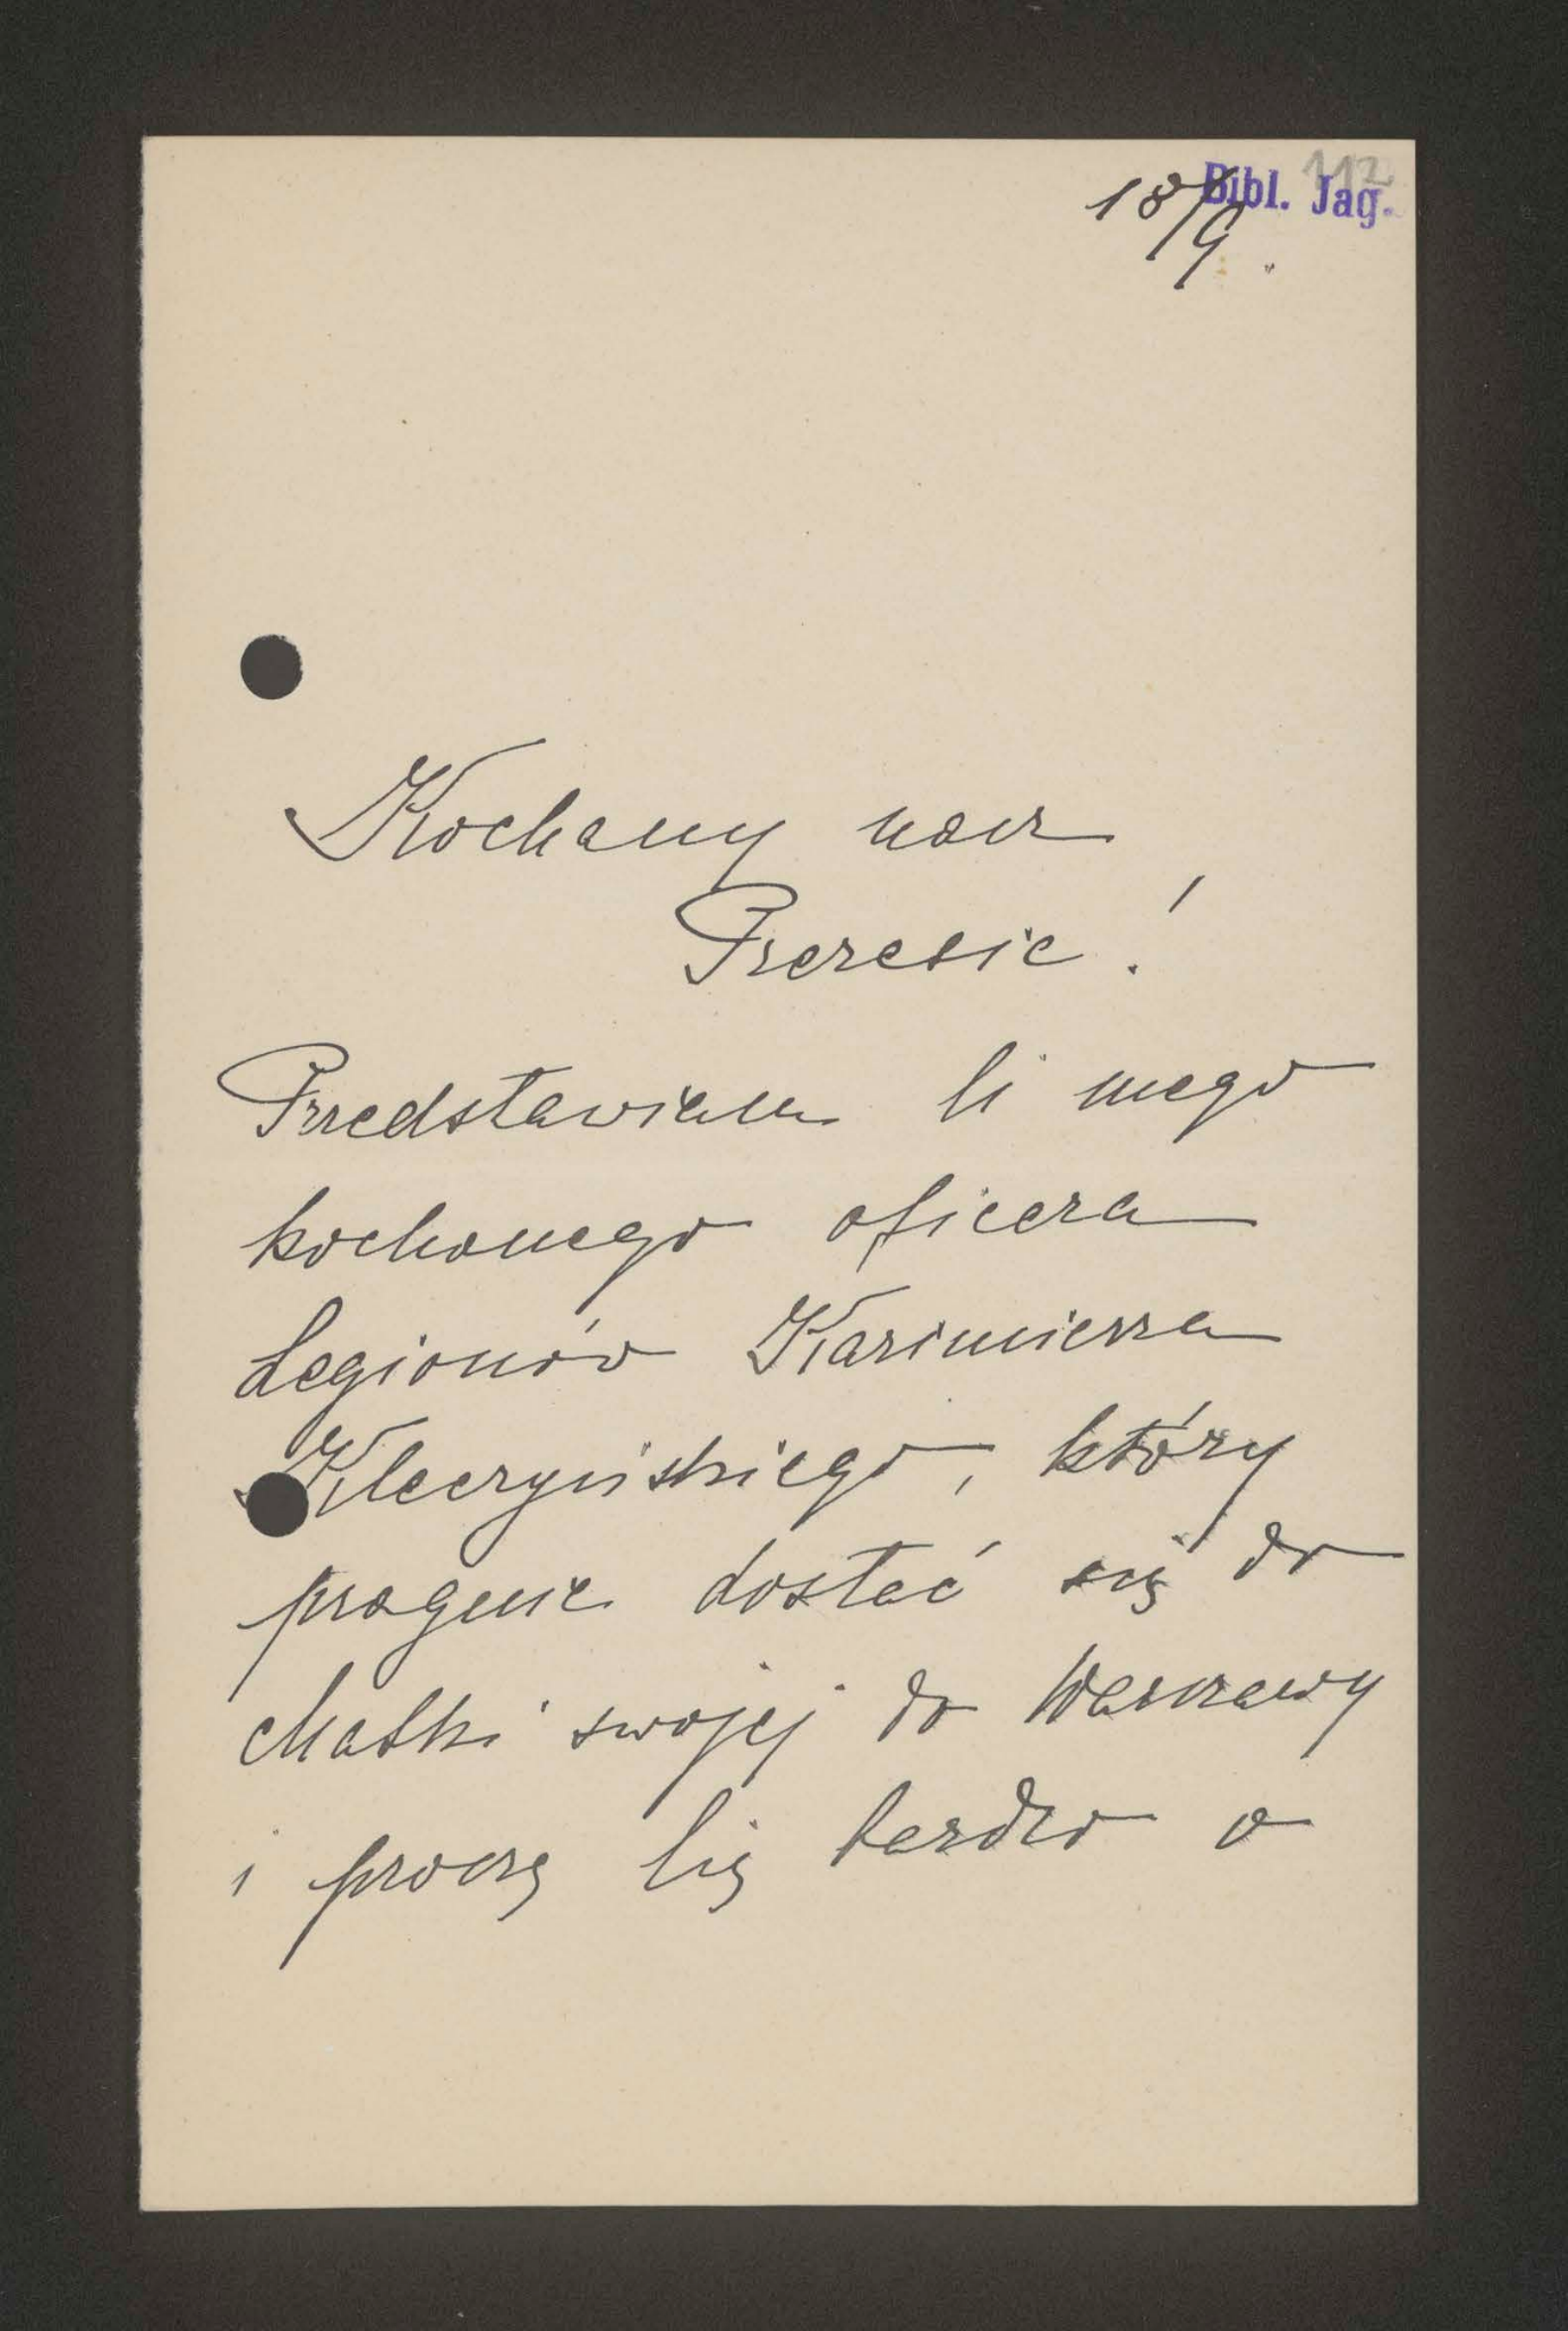 112
Bibl. Jag.
18/9.
Kochany nasz
Prezesie!
Przedstawiam Ci mego
kochanego oficera
Legionów Kazimierza
Kleczyńskiego, który
pragnie dostać się do
Matki swojej do Warszawy
i proszę Cię bardzo o